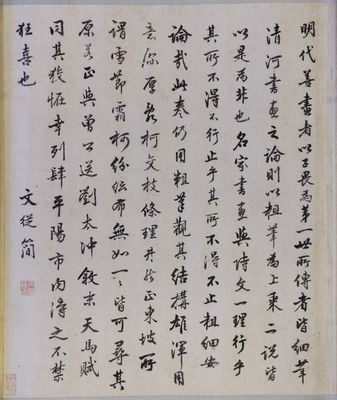 明代善畫者以子畏為第一世所傳者皆細筆
清河書畫之論則以粗筆為上乘二說皆
以是為非也名家書畫與詩文一理行乎
其所不得不行止乎其所不得不止粗細安
論哉此奏仍用粗筆觀其結搆雄渾用
意深厚喬柯交枝條理井然正東坡所
謂雪節霜柯紛紜布無如一一皆可尋其
原者正與曾公送劉太沖敘米天馬賦
同其狡恠幸列肆平陽市內得之不禁
狂喜也
文從簡